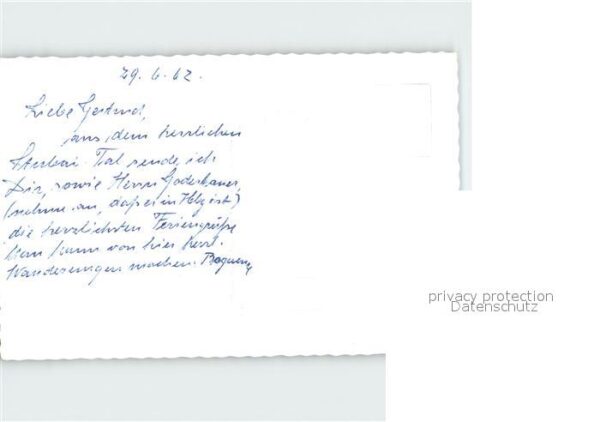 29.6.62.
Liebe Gertrud,
aus dem herrlichen
Tal sende ich
Dir, sowie Herrn
(nehme an, daß er in ist)
die herzlichsten Feriengrüße
Man kann von hier herrl.
Wanderungen machen.
privacy protection
Datenschutz